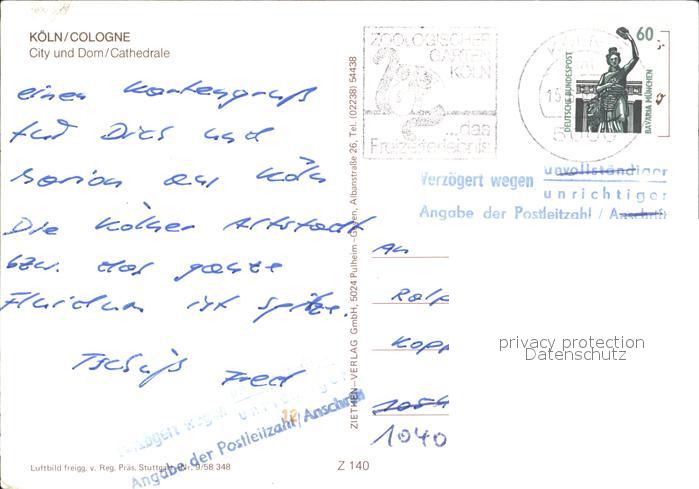 KÖLN/COLOGNE
City und Dom/Cathedrale
einen Kartengruß
für Dich und
Marion aus Köln
Die Kölner Altstadt
bzw. das ganze
Fluidum ist spitze.
Tschüß Fred
ZIETHEN-VERLAG GmbH, 5024 Pulheim-Geyen, Albanstraße 26, Tel. (02238) 54438
ZOOLOGISCHER
GARTEN
KÖLN
...das
Freizeiterlebnis!
60
DEUTSCHE BUNDESPOST
BAVARIA MÜNCHEN
Verzögert wegen unvollständiger
unrichtiger
Angabe der Postleitzahl / Anschrift
An
Ralf
Kopp
1054
1040
privacy protection
Datenschutz
Verzögert wegen
Angabe der Postleitzahl/Anschrift
Luftbild freigg. v. Reg. Präs. Stuttgart Nr. 9/58 348
Z 140